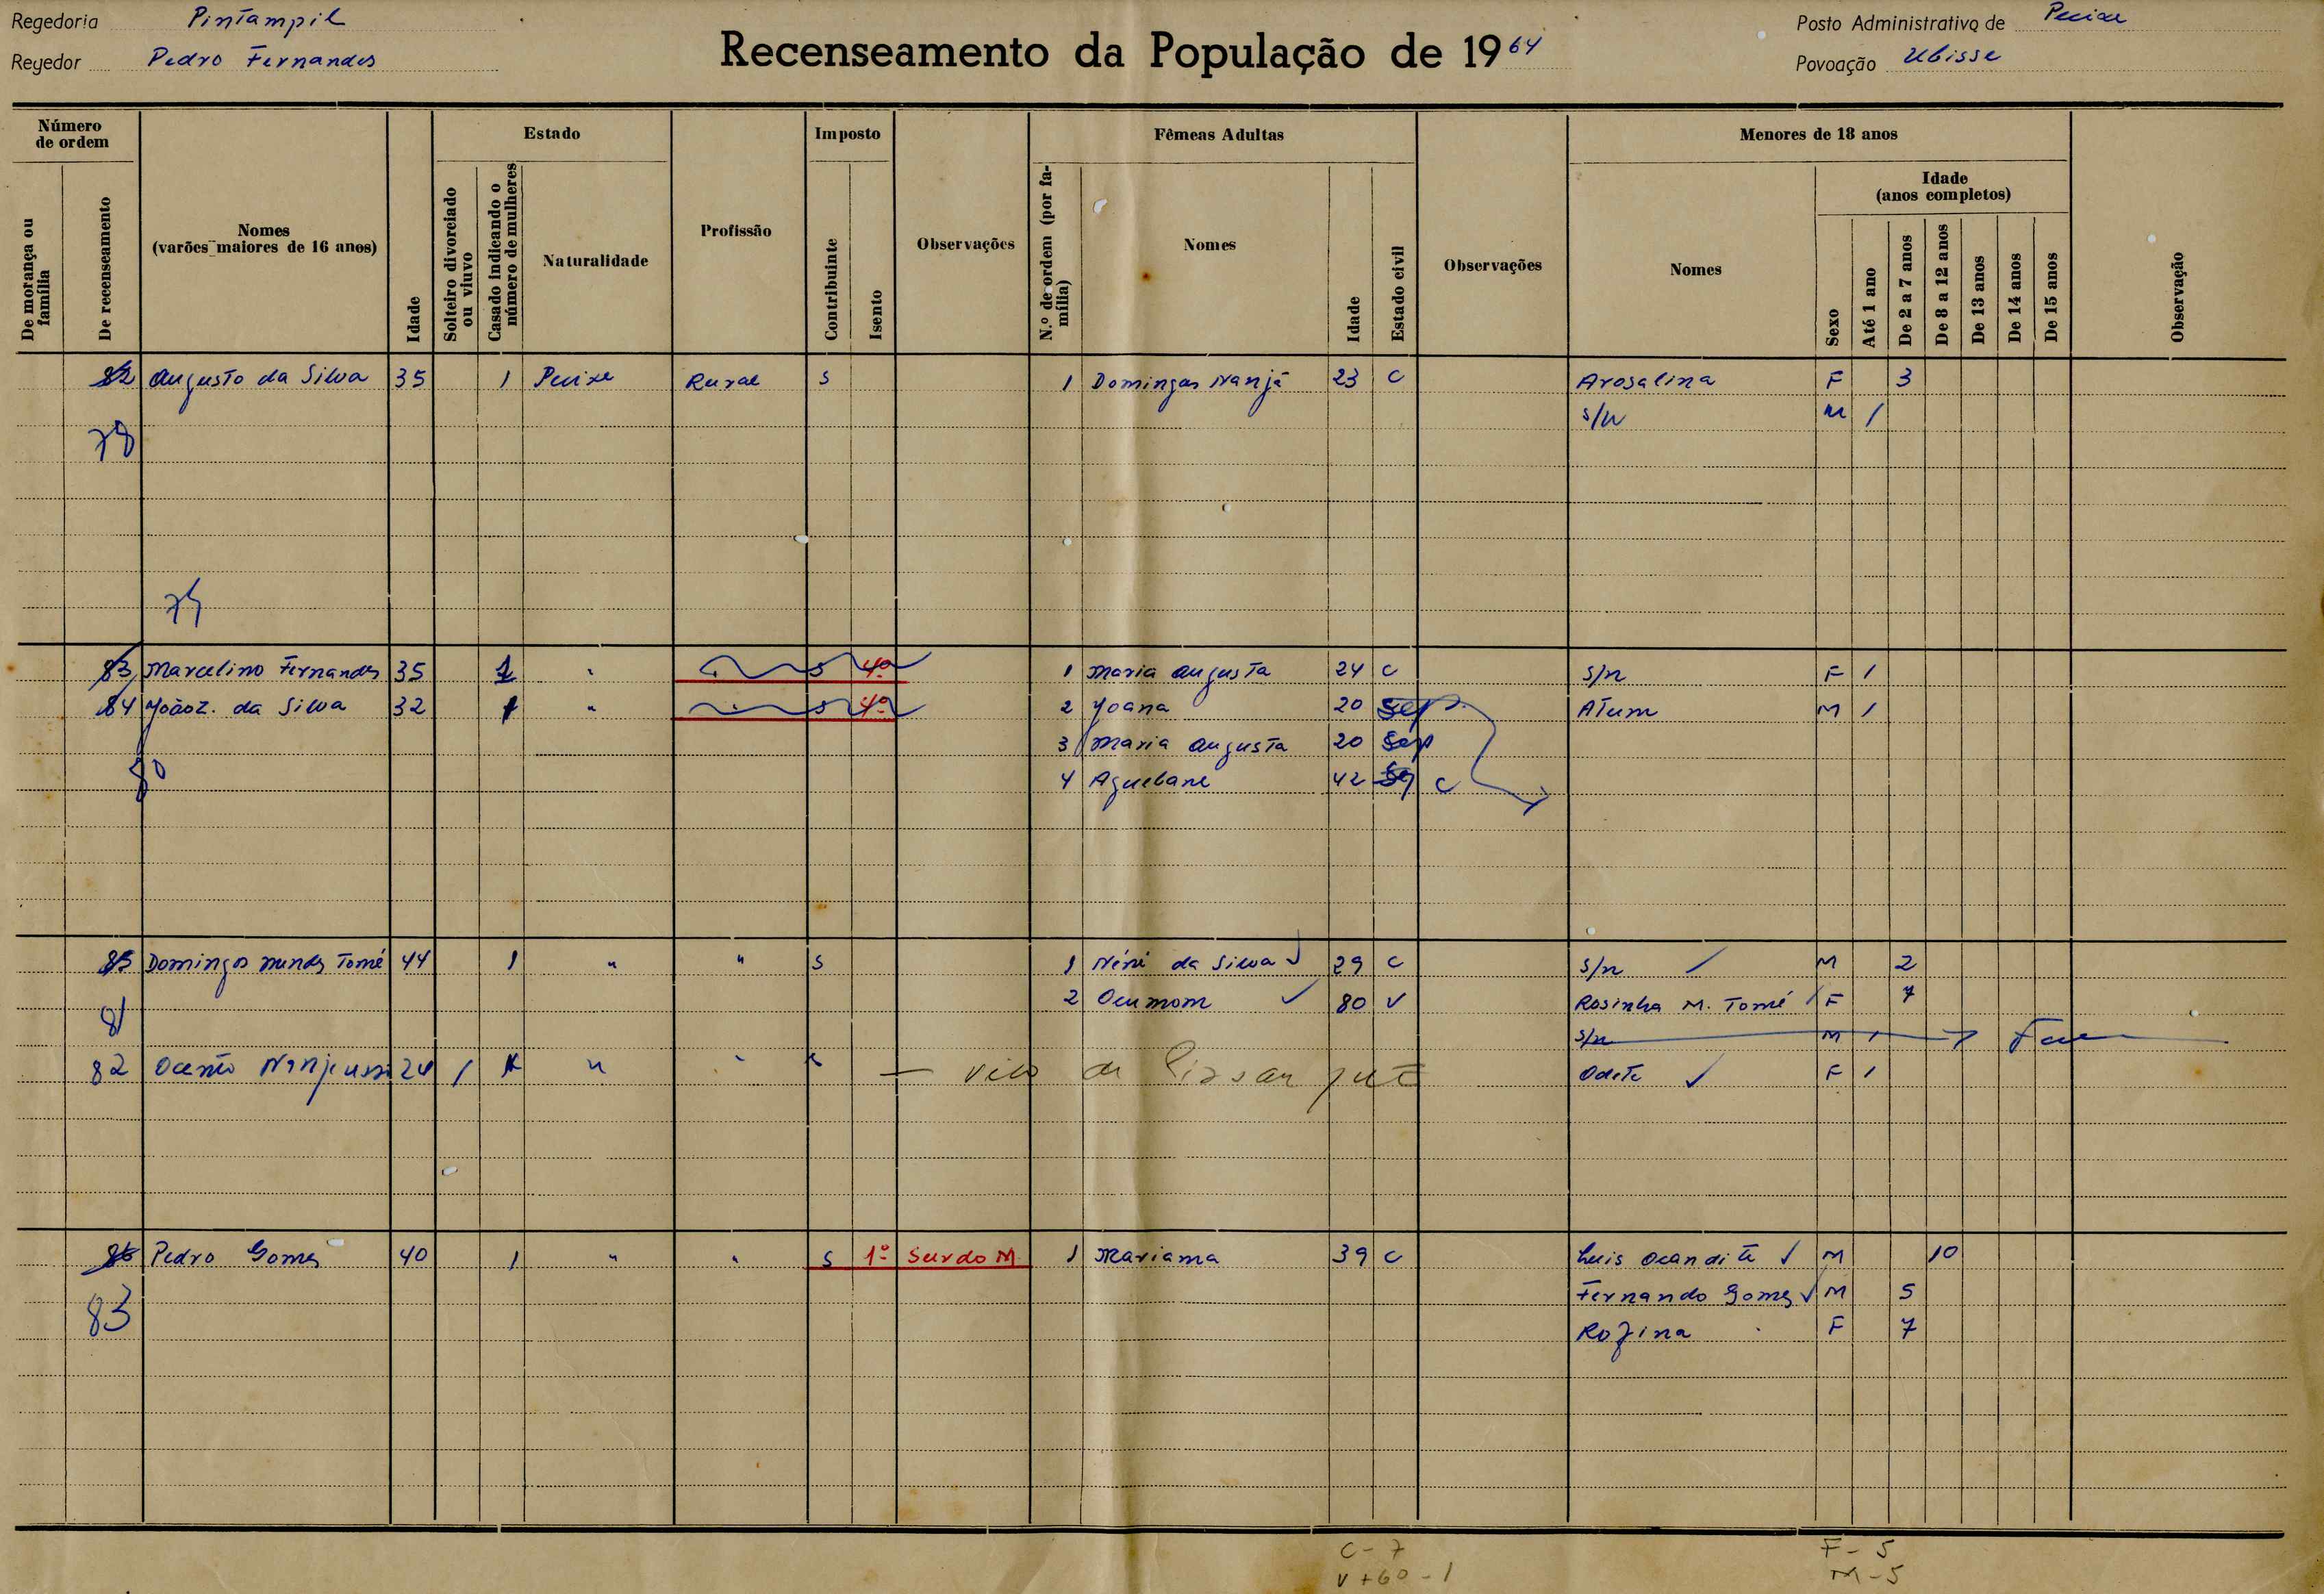 Regedoria Pintampil
Regedor Pedro Fernandes
Recenseamento da População de 1964
Posto Administrativo de Pecixe
Povoação Ubisse
Número de ordem
De morança ou família
De recenseamento
Nomes (varões maiores de 16 anos)
Idade
Estado
Solteiro divorciado ou viuvo
Casado indicando o número de mulheres
Naturalidade
Profissão
Imposto
Contribuinte
Isento
Observações
Fêmeas Adultas
N.º de ordem (por família)
Nomes
Idade
Estado civil
Observações
Menores de 18 anos
Nomes
Sexo
Idade (anos completos)
Até 1 ano
De 2 a 7 anos
De 8 a 12 anos
De 13 anos
De 14 anos
De 15 anos
Observação
82 Augusto da Silva 35 1 Pecixe Rural S 1 Domingas Nanjá 23 C Arosalina F 3
S/N M 1
78
79
83 Marcelino Fernandes 35 1 " S 4º 1 Maria Augusta 24 C S/n F 1
84 João Z. da Silva 32 1 " " S 4º 2 Joana 20 Sep Atum M 1
3 Maria Augusta 20 Sep
80 4 Aguebane 42 C
85 Domingos Mendes Tomé 44 1 " " S 1 Néné da Silva 29 C S/n M 2
2 Ocumom 80 V Rosinha M. Tomé F 7
81 S/n M 1
82 24 1 " " Odete F 1
86 Pedro Gomes 40 1 " " S 1º Surdo M. 1 Mariama 39 C Luis Ocandite M 10
Fernando Gomes M 5
83 Rofina F 7
C - 7 F - 5
V + 60 - 1 M - 5